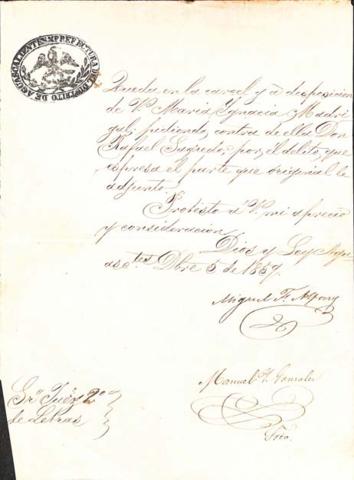 PREFECTURA DEL DISTRITO DE AGUASCALIENTES
Queda en la carcel y á disposicion
de V. Maria Ygnacia Madri
gal; pidiendo contra de ella Don
Rafael Sagredo, por el delito que
espresa el parte que original le
adjunto.
Protesto á V. mi aprecio
y consideracion.
Dios y Ley.
Dbre 5 de 1857.
Miguel F.
Manuel Gonzales
Srio.
Sr. Juez 2º
de Letras